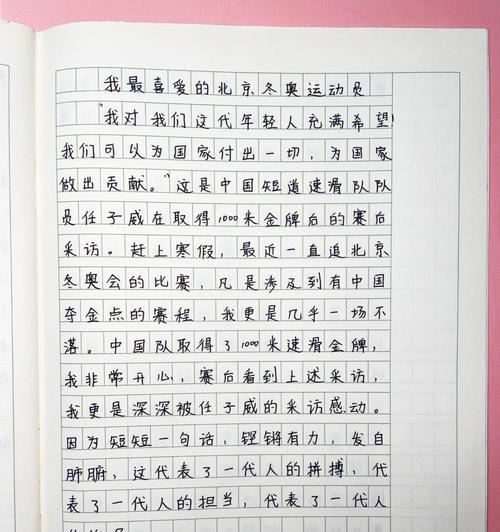 我最喜爱的北京冬奥运动员
"我对我们这代年轻人充满希望!
我们可以为国家付出一切，为国家
做出贡献。"这是中国短道速滑队队
员任子威在取得1000米金牌后的赛后
采访。赶上寒假，最近一直追北京
冬奥会的比赛，凡是涉及到有中国
夺金点的赛程，我更是几乎一场不
落。中国队取得了1000米速滑金牌，
我非常开心，赛后看到上述采访，
我更是深深被任子威的采访感动。
因为短短一句话，铿锵有力，发自
肺腑，这代表了一代人的拼搏，代
表了一代人的担当，代表了一代人